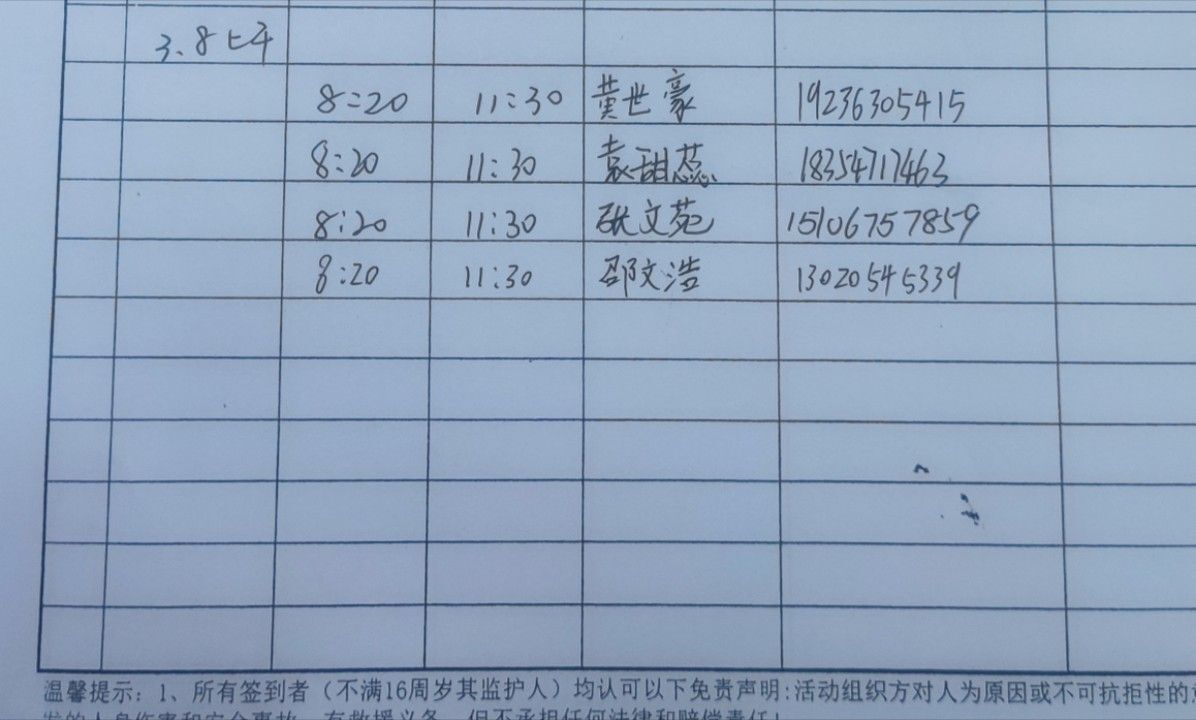 3.8上午
8:20 11:30 黄世豪 19236305415
8:20 11:30 袁甜蕊 18354717463
8:20 11:30 张文苑 15106757859
8:20 11:30 邵文浩 13020545339
温馨提示：1、所有签到者（不满16周岁其监护人）均认可以下免责声明:活动组织方对人为原因或不可抗拒性的
发的人身伤害和安全事故，有救援义务，但不承担任何法律和赔偿责任!